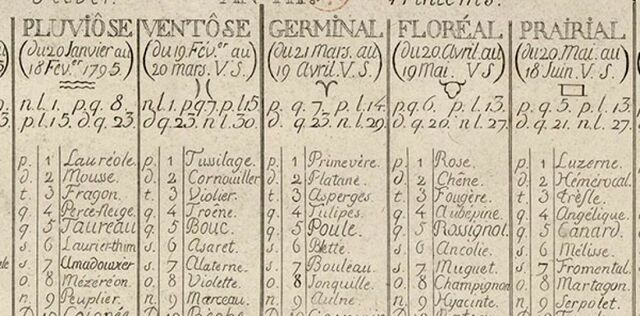 Printems.
PLUVIÔSE
(du 20 Janvier au
18 Fév.er 1795.)
n.l.1. p.q.8.
p.l.15. d.q.23.
p. 1 Lauréole.
d. 2 Mousse.
t. 3 Fragon.
q. 4 Perce-Neige.
q. 5 Taureau
s. 6 Laurier-thim
s. 7 Amadouvier
o. 8 Mézéréon.
n. 9 Peuplier.
VENTÔSE
(du 19 Fév.er au
20 mars. V. S.)
n.l.1. p.q.7. p.l.15.
d.q.23. n.l.30.
p. 1 Tussilage.
d. 2 Cornouiller
t. 3 Violier.
q. 4 Troene.
q. 5 Bouc.
s. 6 Asaret.
s. 7 Alaterne.
o. 8 Violette.
n. 9 Marceau.
GERMINAL
(du 21 Mars. au
19 Avril. V. S.)
p.q.7. p.l.14.
d.q.23. n.l.29.
p. 1 Primevère.
d. 2 Platane.
t. 3 Asperges
q. 4 Tulipes.
q. 5 Poule.
s. 6 Blette.
s. 7 Bouleau.
o. 8 Jonquille.
n. 9 Aulne.
FLORÉAL
(du 20 Avril. au
19 Mai. V. S.)
p.q.6. p.l.13.
d.q.20. n.l.27.
p. 1 Rose.
d. 2 Chêne.
t. 3 Fougère.
q. 4 Aubepine.
q. 5 Rossignol.
s. 6 Ancolie.
s. 7 Muguet.
o. 8 Champignon
n. 9 Hyacinte.
PRAIRIAL
(du 20 Mai. au
18 Juin. V. S.)
p.q.5. p.l.13.
d.q.21. n.l.27.
p. 1 Luzerne.
d. 2 Hémérocal.
t. 3 Trèfle.
q. 4 Angélique.
q. 5 Canard.
s. 6 Mélisse.
s. 7 Fromental.
o. 8 Martagon.
n. 9 Serpolet.